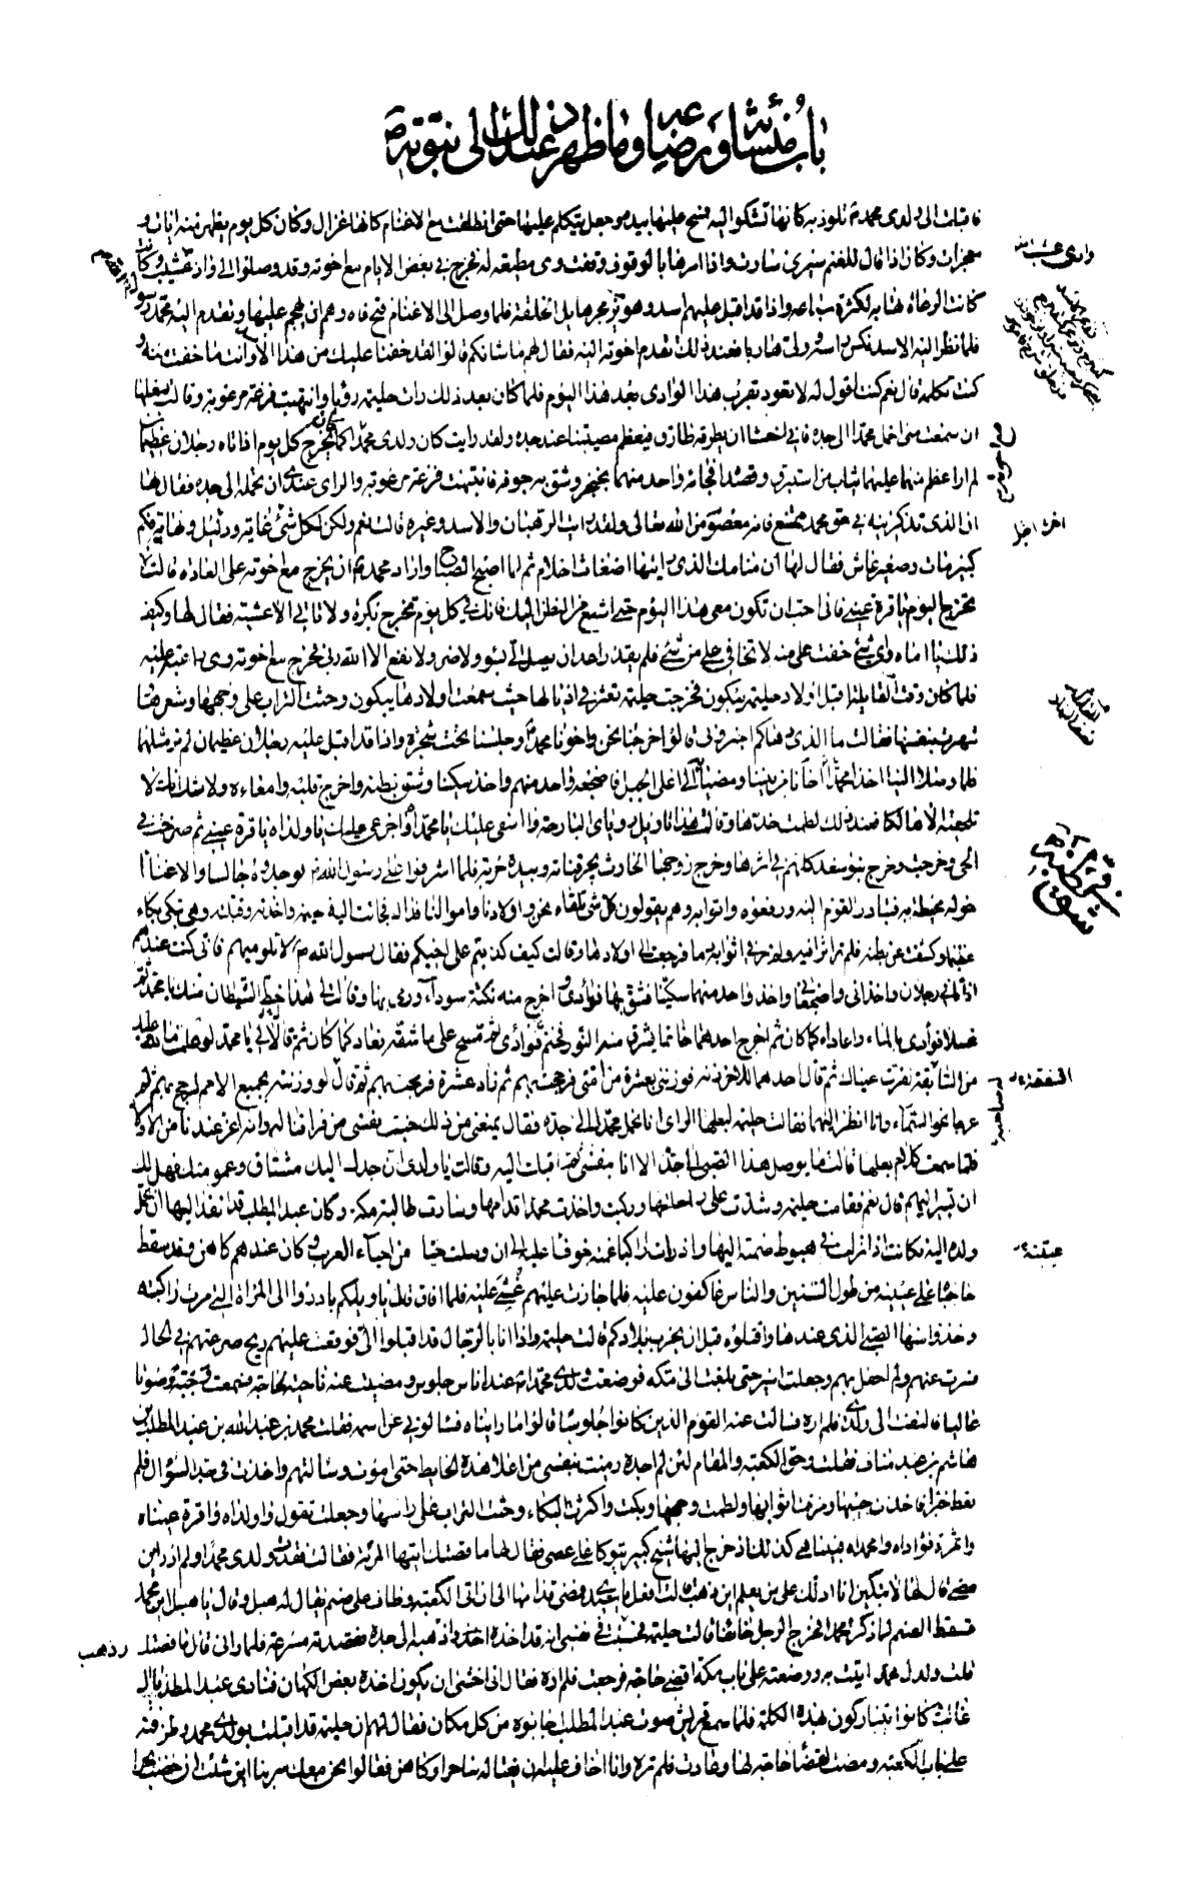 باب منشائه ورضاعه وما ظهر عند ذلك الى نبوته ص
فاقبلت الى ولدى محمد تلوذ به كانها تشكوا اليه فمسح عليها بيده وجعل يتكلم عليها حتى انطلقت مع الاغنام كانها غزال وكان كل يوم يظهر منه ايات و
معجزات وكان اذا قال للغنم سيرى سارت واذا امرها بالوقوف وقفت وهى مطيعة له فخرج فى بعض الايام مع اخوته وقد وصلوا الى واد عشيب وكانت
كانت الرعاة تهابه لكثرة سباعه واذا قد اقبل عليهم اسد وهو يزمجر هايل الخلقة فلما وصل الى الاغنام فتح فاه وهم ان يهجم عليها وتقدم اليه محمد
فلما نظر اليه الاسد نكس راسه وولى هاربا فعند ذلك تقدم اخوته اليه فقال لهم ما شانكم قالوا لقد خفنا عليك من هذا الاسد وانت ما خفت منه و
كنت تكلمه قال نعم كنت اقول له لا تعود تقرب هذا الوادى بعد هذا اليوم فلما كان بعد ذلك رات حليمة رؤيا وانتبهت فزعة مرعوبة وقالت لبعلها
ان سمعت منى احمل محمدا الى جده فانى اخشى ان يطرقه طارق فيعظم مصيبتنا عند جده ولقد رايت كان ولدى محمدا كما يخرج كل يوم اذ اتاه رجلان عظيمان
لم ار اعظم منهما عليهما ثياب من استبرق وقصدا فجاءه واحد منهما بخنجر وشق به جوفه فانتبهت فزعة مرعوبة والراى عندى ان تحمله الى جده فقال لها
ان الذى تذكرينه فى حق محمد ممتنع فانه معصوم من الله تعالى ولقد رايت الرهبان والاسد وغيره قالت نعم ولكن لكل شئ غاية ودليل ونهاية فكم
كبير مات وصغير عاش فقال لها ان منامك الذى رايتها اضغاث احلام ثم لما اصبح الصباح واراد محمد ان يخرج مع اخوته على العادة قالت لا
تخرج اليوم يا قرة عينى فانى احب ان تكون معى هذا اليوم حتى اشبع من النظر اليك فانك فى كل يوم تخرج بكرة ولا تاتى الا عشية فقال لها وكيف
ذلك يا اماه واى شئ خفت على منه لا تخافى على من شئ فلم يقدر احد ان يصل الى بسوء ولا ضر ولا نفع الا الله ربى فخرج مع اخوته
فلما كان وقت القايلة اقبل اولاد حليمة يبكون فخرجت حليمة تعثر فى اذيالها حيث سمعت اولادها يبكون وحثت التراب على وجهها وشعرها
شهرت بنفسها فقالت ما الذى دهاكم اخبرونى قالوا خرجنا نحن واخونا محمد وجلسنا تحت شجرة واذا قد اقبل عليه رجلان عظيمان لم نر مثلهما
فلما وصلا الينا اخذا محمدا اخانا من بيننا ومضيا به الى اعلى الجبل فاضجعه واحد منهم واخذ سكينا وشق بطنه واخرج قلبه وامعاءه ولا شك انك لا
تلحقيه الا هالكا فعند ذلك لطمت خدها وقالت هذا تاويل رؤياى البارحة وا اسفى عليك يا محمد وا جزعى عليك يا ولداه يا قرة عينى ثم صرخت فى
الحى وخرجت وخرج بنو سعد كلهم فى اثرها وخرج زوجها الحارث يجر قناته وبيده حربة فلما اشرفوا على رسول الله وجدوه جالسا والاغنام
حوله محيطة به فتبادر القوم اليه ورفعوه واتوا به وهم يقولون كل شئ تلقاه نحن واولادنا واموالنا فداك فجاءت اليه حليمة واخذته وقبلته وهى تبكى بكاء
عظيما وكشفت عن بطنه فلم تر اثرا فيه ولم تر فى اثوابه دما فرجعت الى اولادها وقالت كيف كذبتم على اخيكم فقال رسول الله ص لا تلوميهم فانى كنت عندهم
اذ اتانى رجلان واخذانى واضجعانى واخذ واحد منهما سكينا فشق بها فؤادى واخرج منه نكتة سوداء ورمى بها وقال لى هذا حظ الشيطان منك يا محمد ثم
غسلا فؤادى بالماء واعاداه كما كان ثم اخرج احدهما خاتما يشرق منه النور فختم فؤادى ثم مسح على ما شقه فعاد كما كان ثم قالا لى يا محمد لو علمت ما لك عند الله
من السابقة لقرت عيناك ثم قال احدهما للاخر زنه فوزننى بعشرة من امتى فرجحت بهم ثم زاد عشرة فرجحت بهم ثم قال لو وزنته بجميع الامم لرجح بهم ثم
عرجا نحو السماء وانا انظر اليهما فقالت حليمة لبعلها الراى انا نحمل محمدا الى جده فقال يمنعنى من ذلك خشيت نفسى من فراقنا له وانه اعز عندنا من الاولاد
فلما سمعت كلام بعلها قالت ما يوصل هذا الصبى الى جده الا انا بنفسى ثم اقبلت اليه وقالت يا ولدى ان جدك اليك مشتاق وعمومتك فهل لك
ان تسير اليهم قال نعم فقامت حليمة وشدت على راحلتها وركبت واخذت محمدا قدامها وسارت طالبة مكة وكان عبد المطلب قد انفذ اليها ان تحمل
ولده اليه فكانت اذا نزلت فى هبوط ضمته اليها واذا رات راكبا غمته خوفا عليه الى ان وصلت حيا من احياء العرب وكان عندهم كاهن وقد سقط
حاجباه على عينيه من طول السنين والناس عاكفون عليه فلما جازت عليهم غشى عليه فلما افاق قال يا ويلكم بادروا الى المراة التى مرت راكبة
وخذوا منها الصبى الذى عندها واقتلوه قبل ان يخرب بلادكم قالت حليمة واذا انا بالرجال قد اقبلوا الى فوقعت عليهم ريح صرعتهم فى الحال
فسرت عنهم ولم احفل بهم وجعلت اسير حتى بلغت الى مكة فوضعت ولدى محمدا عند اناس جلوس ومضيت عنه ناحية لحاجة فسمعت وجبة وصوتا
عاليا فالتفت الى ولدى فلم اره فسالت عنه القوم الذين كانوا جلوسا قالوا ما رايناه فسالونى عن اسمه فقلت محمد بن عبد الله بن عبد المطلب بن
هاشم بن عبد مناف فقلت وحق الكعبة والمقام لئن لم اجده رميت بنفسى من اعلا هذه الحايط حتى اموت وسالتهم واخذت فى جد السؤال فلم
تعط خبرا فاخذت جيبها ومزقت اثوابها ولطمت وجهها وبكت واكثرت البكاء وحثت التراب على راسها وجعلت تقول وا ولداه وا قرة عيناه
وا ثمرة فؤاداه وا محمداه فبينا هى كذلك اذ خرج اليها شيخ كبير يتوكا على عصى فقال لها ما قصتك ايتها المرئة فقالت فقدت ولدى محمدا ولم ادر اين
مضى قال لها لا تبكين انا ادلك على من يعلم اين ذهب قالت افعل يا سيدى فمضى قدامها الى ان اتى الكعبة وطاف على صنم يقال له هبل وقال يا هبل اين محمد
فسقط الصنم لما ذكر محمدا فخرج الرجل خائفا قالت حليمة فحسبت فى نفسى انه قد اخذه احد وذهب به الى جده فقصدته مسرعة فلما رانى قال ما قصتك
قلت ولدك محمد اتيت به ووضعته على باب مكة اقضى حاجة فرجعت فلم اره فقال انى اخشى ان يكون اخذه بعض الكهان فنادى عبد المطلب يا آل
غالب كانوا يتباركون بهذه الكلمة فلما سمع قريش صوت عبد المطلب جابوه من كل مكان فقال لهم ان حليمة قد اقبلت بولدى محمد وطرحته
على باب الكعبة ومضت لقضاء حاجة لها وعادت فلم تره وانا اخاف عليه ان يغتاله ساحر او كاهن فقالوا نحن معك سر بنا اين شئت